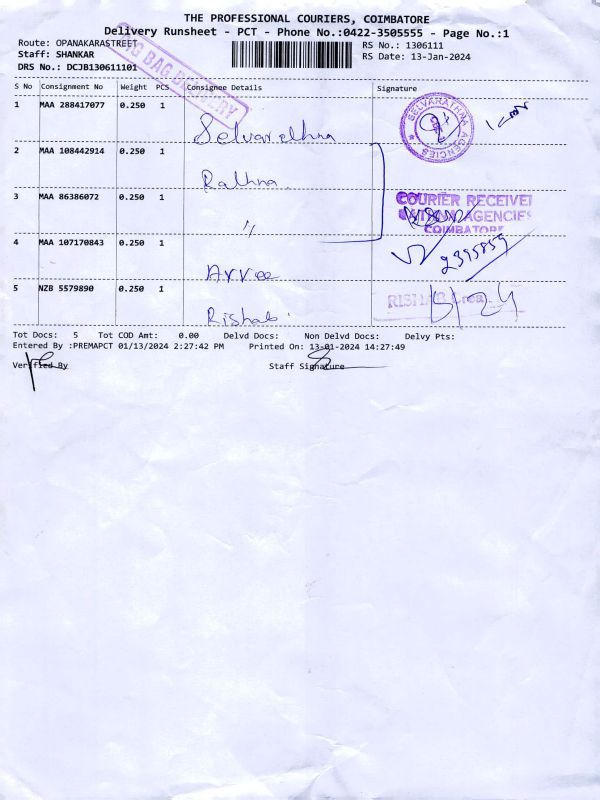 THE PROFESSIONAL COURIERS, COIMBATORE
Delivery Runsheet - PCT - Phone No.:0422-3505555 - Page No.:1
Route: OPANAKARASTREET
Staff: SHANKAR
DRS No.: DCJB130611101
RS No.: 1306111
RS Date: 13-Jan-2024
BAG DELIVERY
S No Consignment No Weight PCS Consignee Details Signature
1 MAA 288417077 0.250 1
Selvarathna
SELVARATHNA AGENCIES
2 MAA 108442914 0.250 1
Rathna
3 MAA 86386072 0.250 1
"
COURIER RECEIVED
AGENCIES
COIMBATORE
4 MAA 107170843 0.250 1
Arvee
2395859
5 NZB 5579890 0.250 1
Rishab
RISHAB
Tot Docs: 5 Tot COD Amt: 0.00 Delvd Docs: Non Delvd Docs: Delvy Pts:
Entered By :PREMAPCT 01/13/2024 2:27:42 PM Printed On: 13-01-2024 14:27:49
Verified By Staff Signature